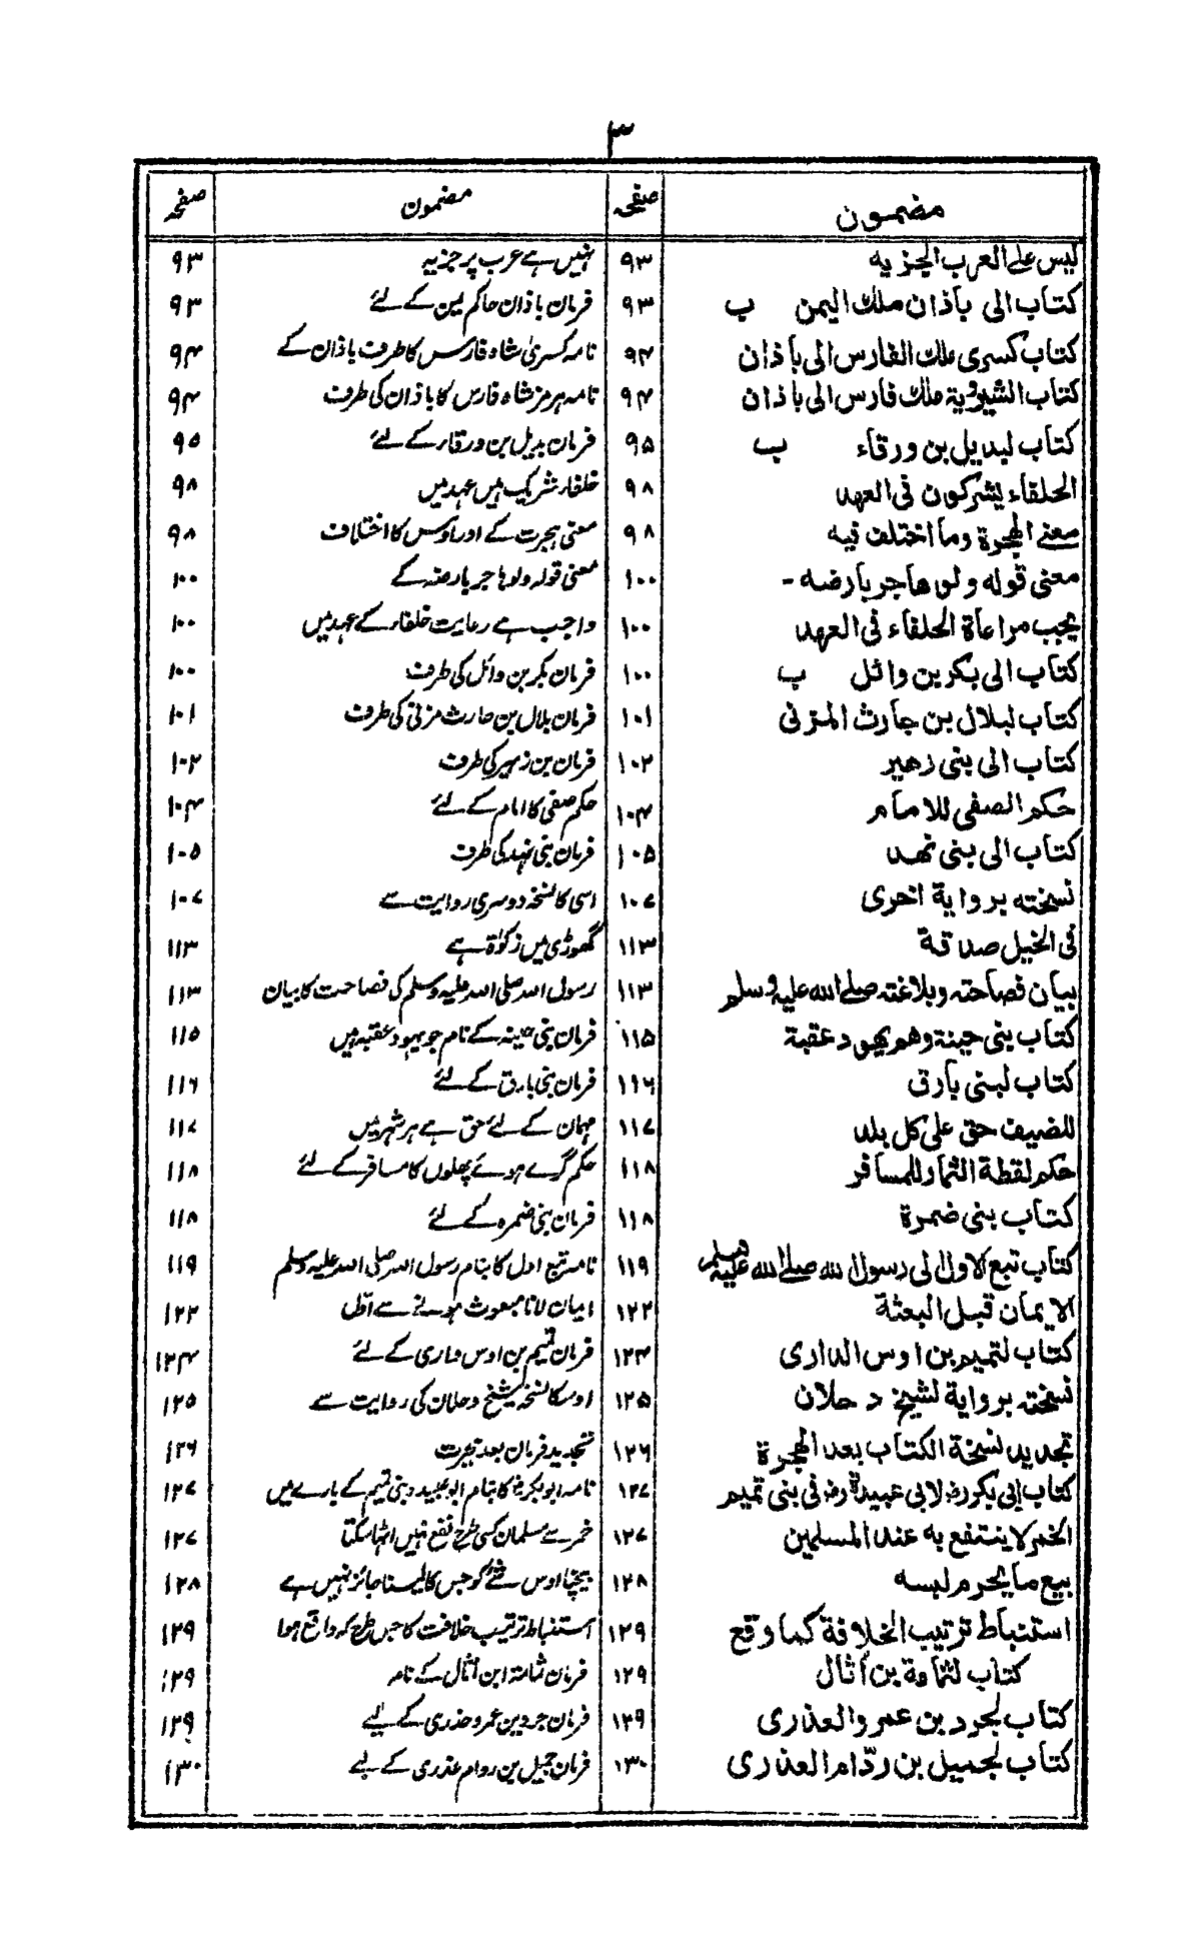 ٣
مضمون صفحہ مضمون صفحہ
ليس على العرب الجزيه ٩٣ نہیں ہے عرب پر جزیہ ٩٣
كتاب الى باذان ملك اليمن ب ٩٣ فرمان باذان حاکم یمن کے لئے ٩٣
كتاب كسرى ملك الفارس الى باذان ٩۴ نامہ کسریٰ شاہ فارس کا طرف باذان کے ٩۴
كتاب الشيروية ملك فارس الى باذان ٩۴ نامہ ہرمز شاہ فارس کا باذان کی طرف ٩۴
كتاب لبديل بن ورقاء ب ٩۵ فرمان بدیل بن ورقار کے لئے ٩۵
الحلفاء يشركون فى العهد ٩٨ خلفار شریک ہیں عہد میں ٩٨
معنے الهجرة وما اختلف فيه ٩٨ معنی ہجرت کے اور اوس کا اختلاف ٩٨
معنى قوله ولو هاجر بارضه - ١٠٠ معنی قولہ ولو ہاجر بارضہ کے ١٠٠
يجب مراعاة الحلفاء فى العهد ١٠٠ واجب ہے رعایت خلفار کے عہد میں ١٠٠
كتاب الى بكر بن وائل ب ١٠٠ فرمان بکر بن وائل کی طرف ١٠٠
كتاب لبلال بن حارث المزنى ١٠١ فرمان بلال بن حارث مزنی کی طرف ١٠١
كتاب الى بنى زهير ١٠٢ فرمان بن زہیر کی طرف ١٠٢
حكم الصفى للامام ١٠۴ حکم صفی کا امام کے لئے ١٠۴
كتاب الى بنى نهد ١٠۵ فرمان بنی نہد کی طرف ١٠۵
نسخته برواية اخرى ١٠٧ اسی کا نسخہ دوسری روایت سے ١٠٧
فى الخيل صداقة ١١٣ گھوڑی میں زکوٰۃ ہے ١١٣
بيان فصاحته وبلاغته صلے الله عليه وسلم ١١٣ رسول اللہ صلی اللہ علیہ وسلم کی فصاحت کا بیان ١١٣
كتاب بنى جينة وهم يهود عقبة ١١۵ فرمان بنی جینہ کے نام جو یہود عقبہ ہیں ١١۵
كتاب لبنى بارق ١١٦ فرمان بنی بارق کے لئے ١١٦
للضيف حق على كل بلد ١١٧ مہمان کے لئے حق ہے ہر شہر میں ١١٧
حكم لقطة الثمار للمسافر ١١٨ حکم گرے ہوئے پھلوں کا مسافر کے لئے ١١٨
كتاب بنى ضمرة ١١٨ فرمان بنی ضمرہ کے لئے ١١٨
كتاب تبع الاول الى رسول الله صلے الله عليه وسلم ١١٩ نامہ تبع اول کا بنام رسول اللہ صلی اللہ علیہ وسلم ١١٩
الايمان قبل البعثة ١٢٢ ایمان لانا مبعوث ہونے سے اوّل ١٢٢
كتاب لتميم بن اوس الدارى ١٢۴ فرمان تمیم بن اوس داری کے لئے ١٢۴
نسخته برواية لشيخ دحلان ١٢۵ اوسکا نسخہ شیخ دحلان کی روایت سے ١٢۵
تجديد نسخة الكتاب بعد الهجرة ١٢٦ تجدید فرمان بعد ہجرت ١٢٦
كتاب ابى بكر رض لابى عبيدة رض فى بنى تميم ١٢٧ نامہ ابوبکر رض کا بنام ابو عبید وبنی تمیم کے بارے میں ١٢٧
الخمر لا ينتفع به عند المسلمين ١٢٧ خمر سے مسلمان کسی طرح نفع نہیں اٹھا سکتا ١٢٧
بيع ما يحرم لبسه ١٢٨ بیچنا اوس شئے کو جس کا لبسنا جائز نہیں ہے ١٢٨
استنباط ترتيب الخلافة كما وقع ١٢٩ استنباط ترتیب خلافت کا جس طرح کہ واقع ہوا ١٢٩
كتاب لثمامة بن أثال ١٢٩ فرمان ثمامۃ ابن آثال کے نام ١٢٩
كتاب لجرد بن عمرو العذارى ١٢٩ فرمان جرد بن عمرو حذری کے لیے ١٢٩
كتاب لجميل بن ردّام العذارى ١٣٠ فرمان جمیل بن روام عذری کے لیے ١٣٠